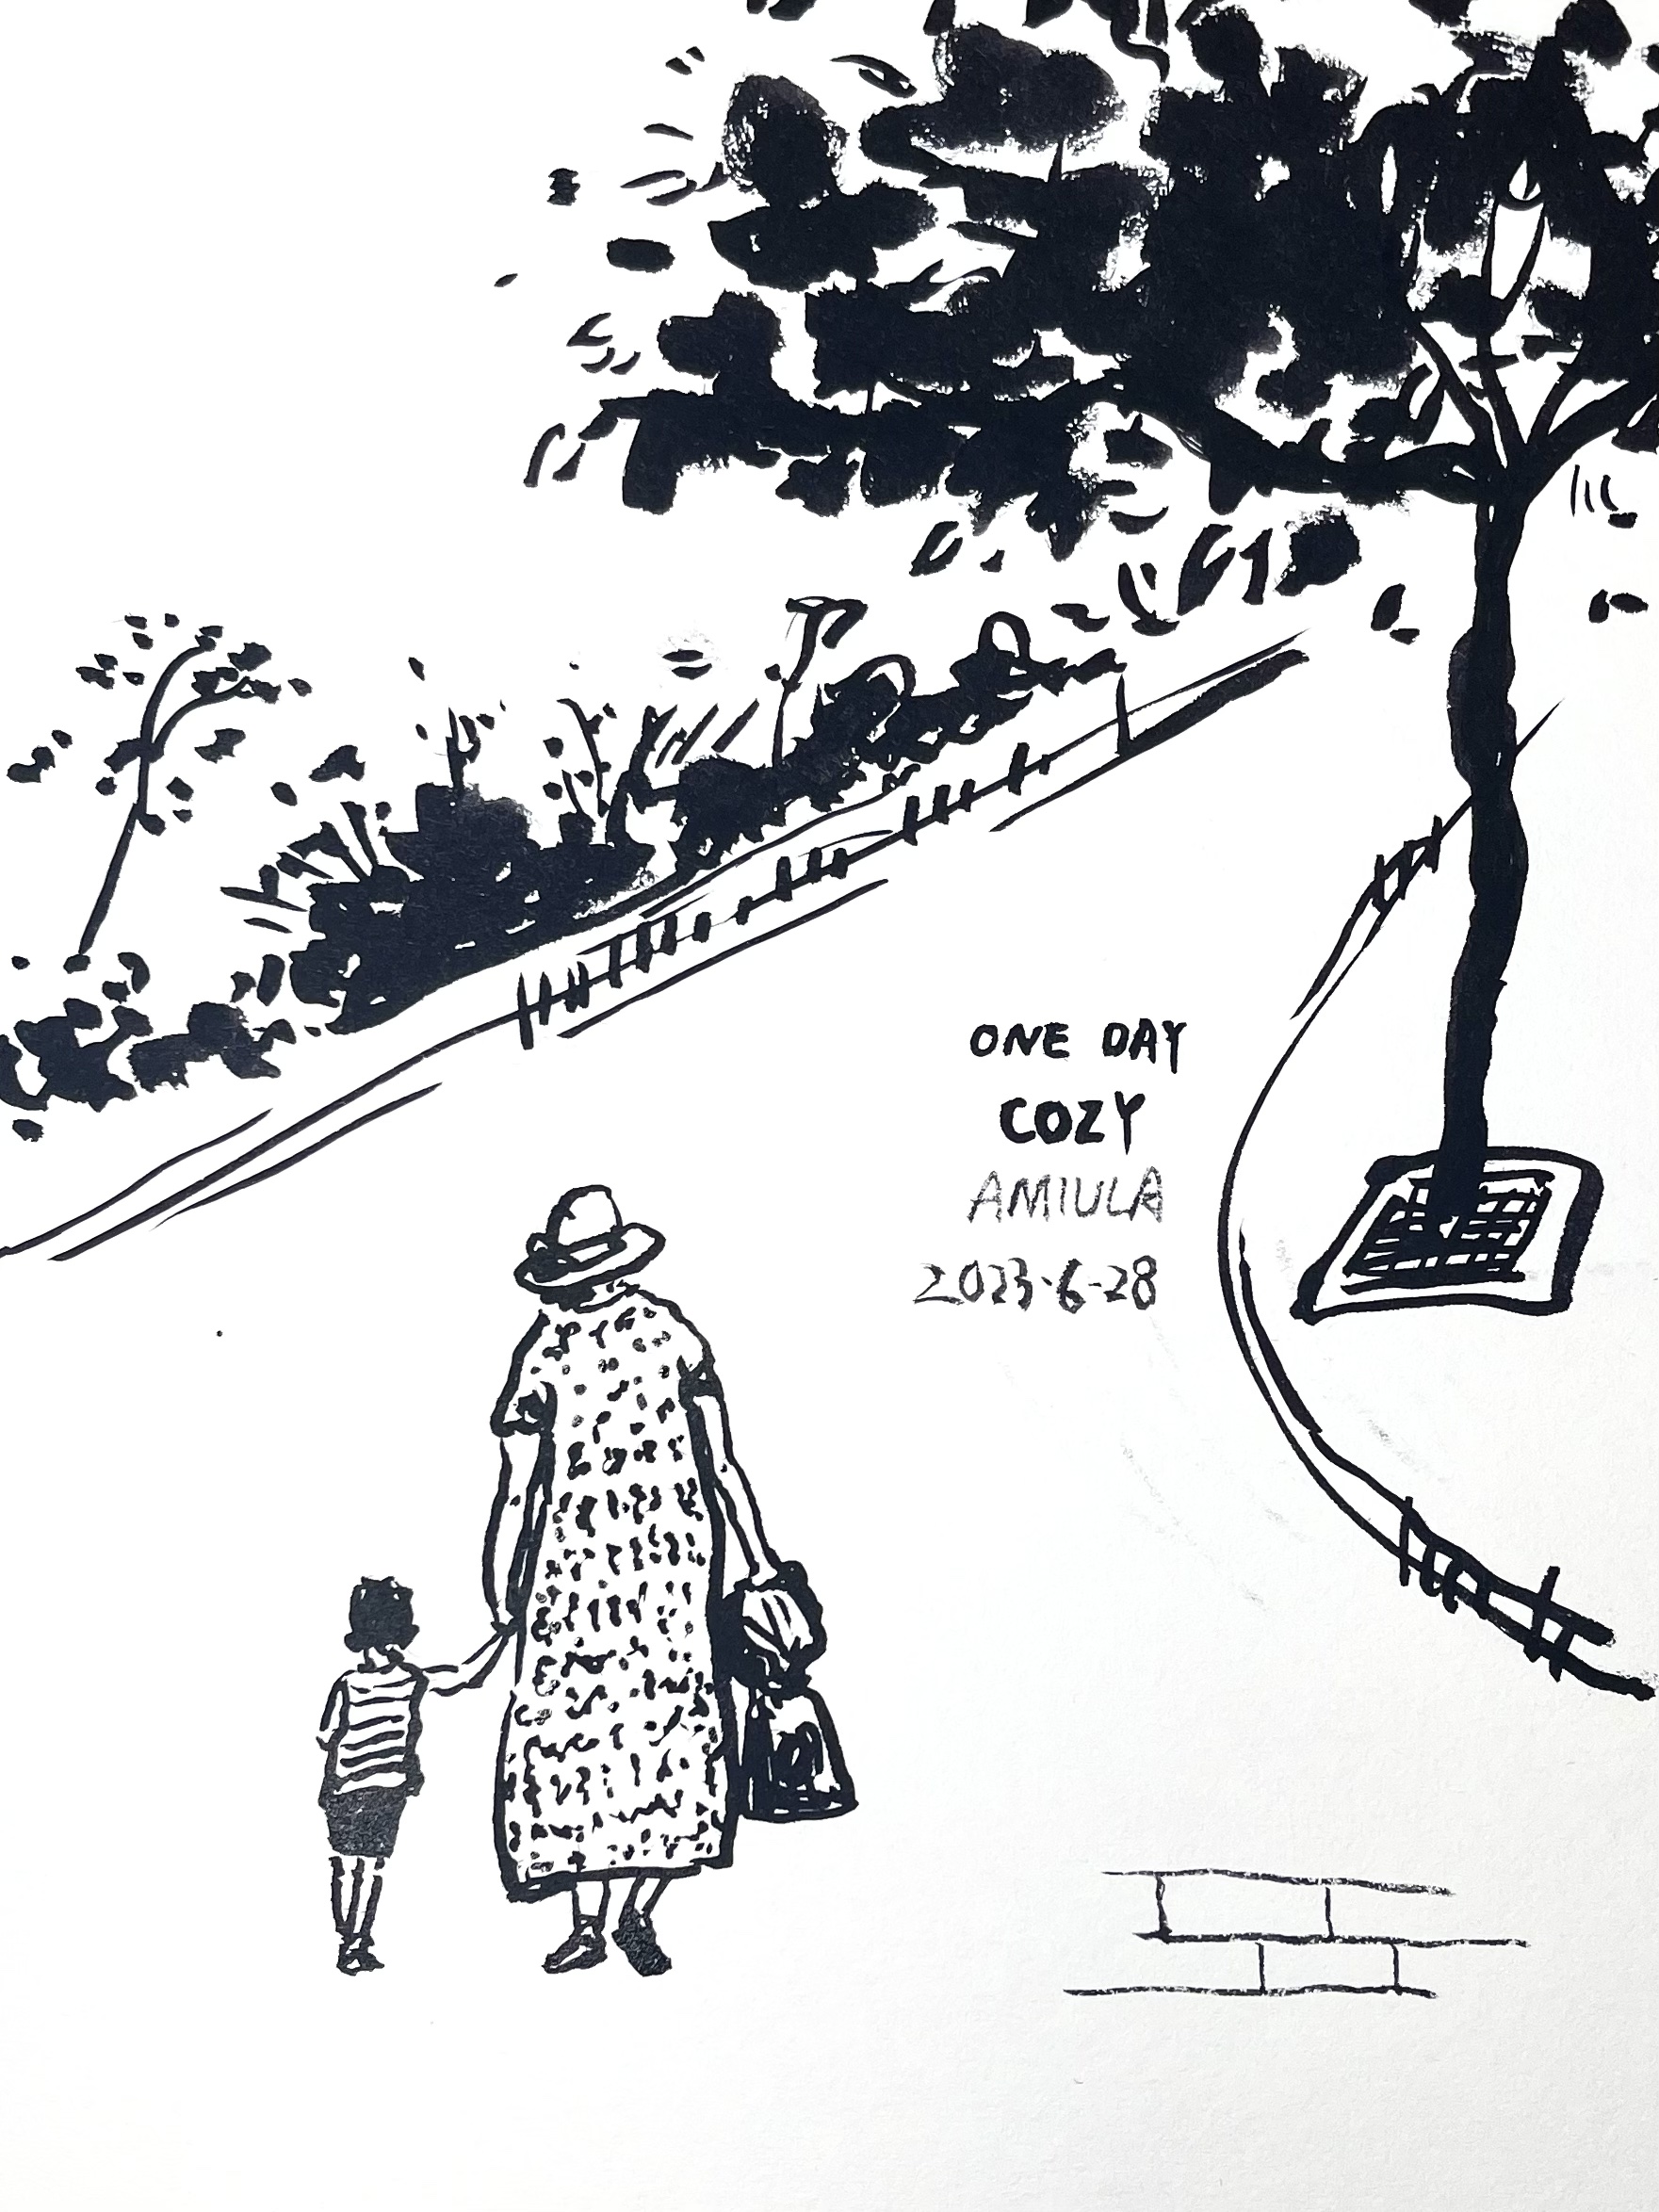 ONE DAY
COZY
AMIULA
2023·6·28